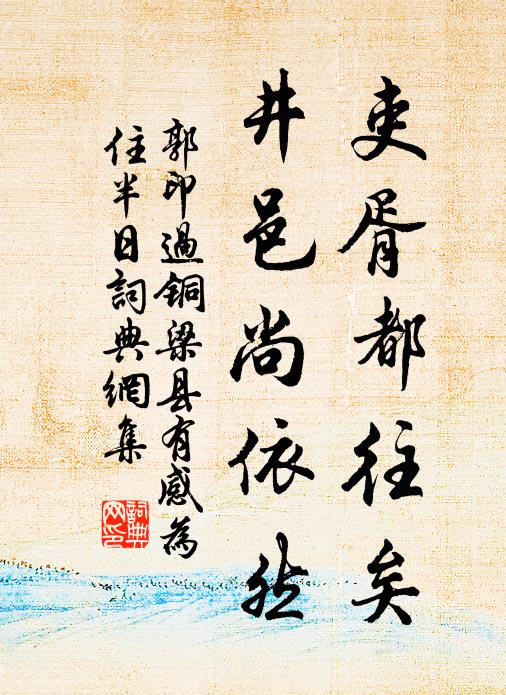 吏胥都往矣
井邑尚依然
郭印過銅梁县有感為
住半日詞典網集
詞典网印